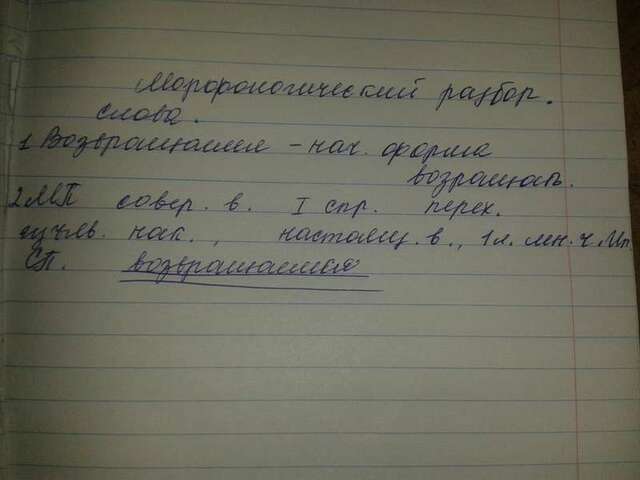 Морфологический разбор.
слова.
1 Возвращаемся - нач. форма
возращат.
2 МП совер. в. I спр. перех.
изъяв. нак., настоящ. в., 1 л. мн. ч.
СП. возвращаемся